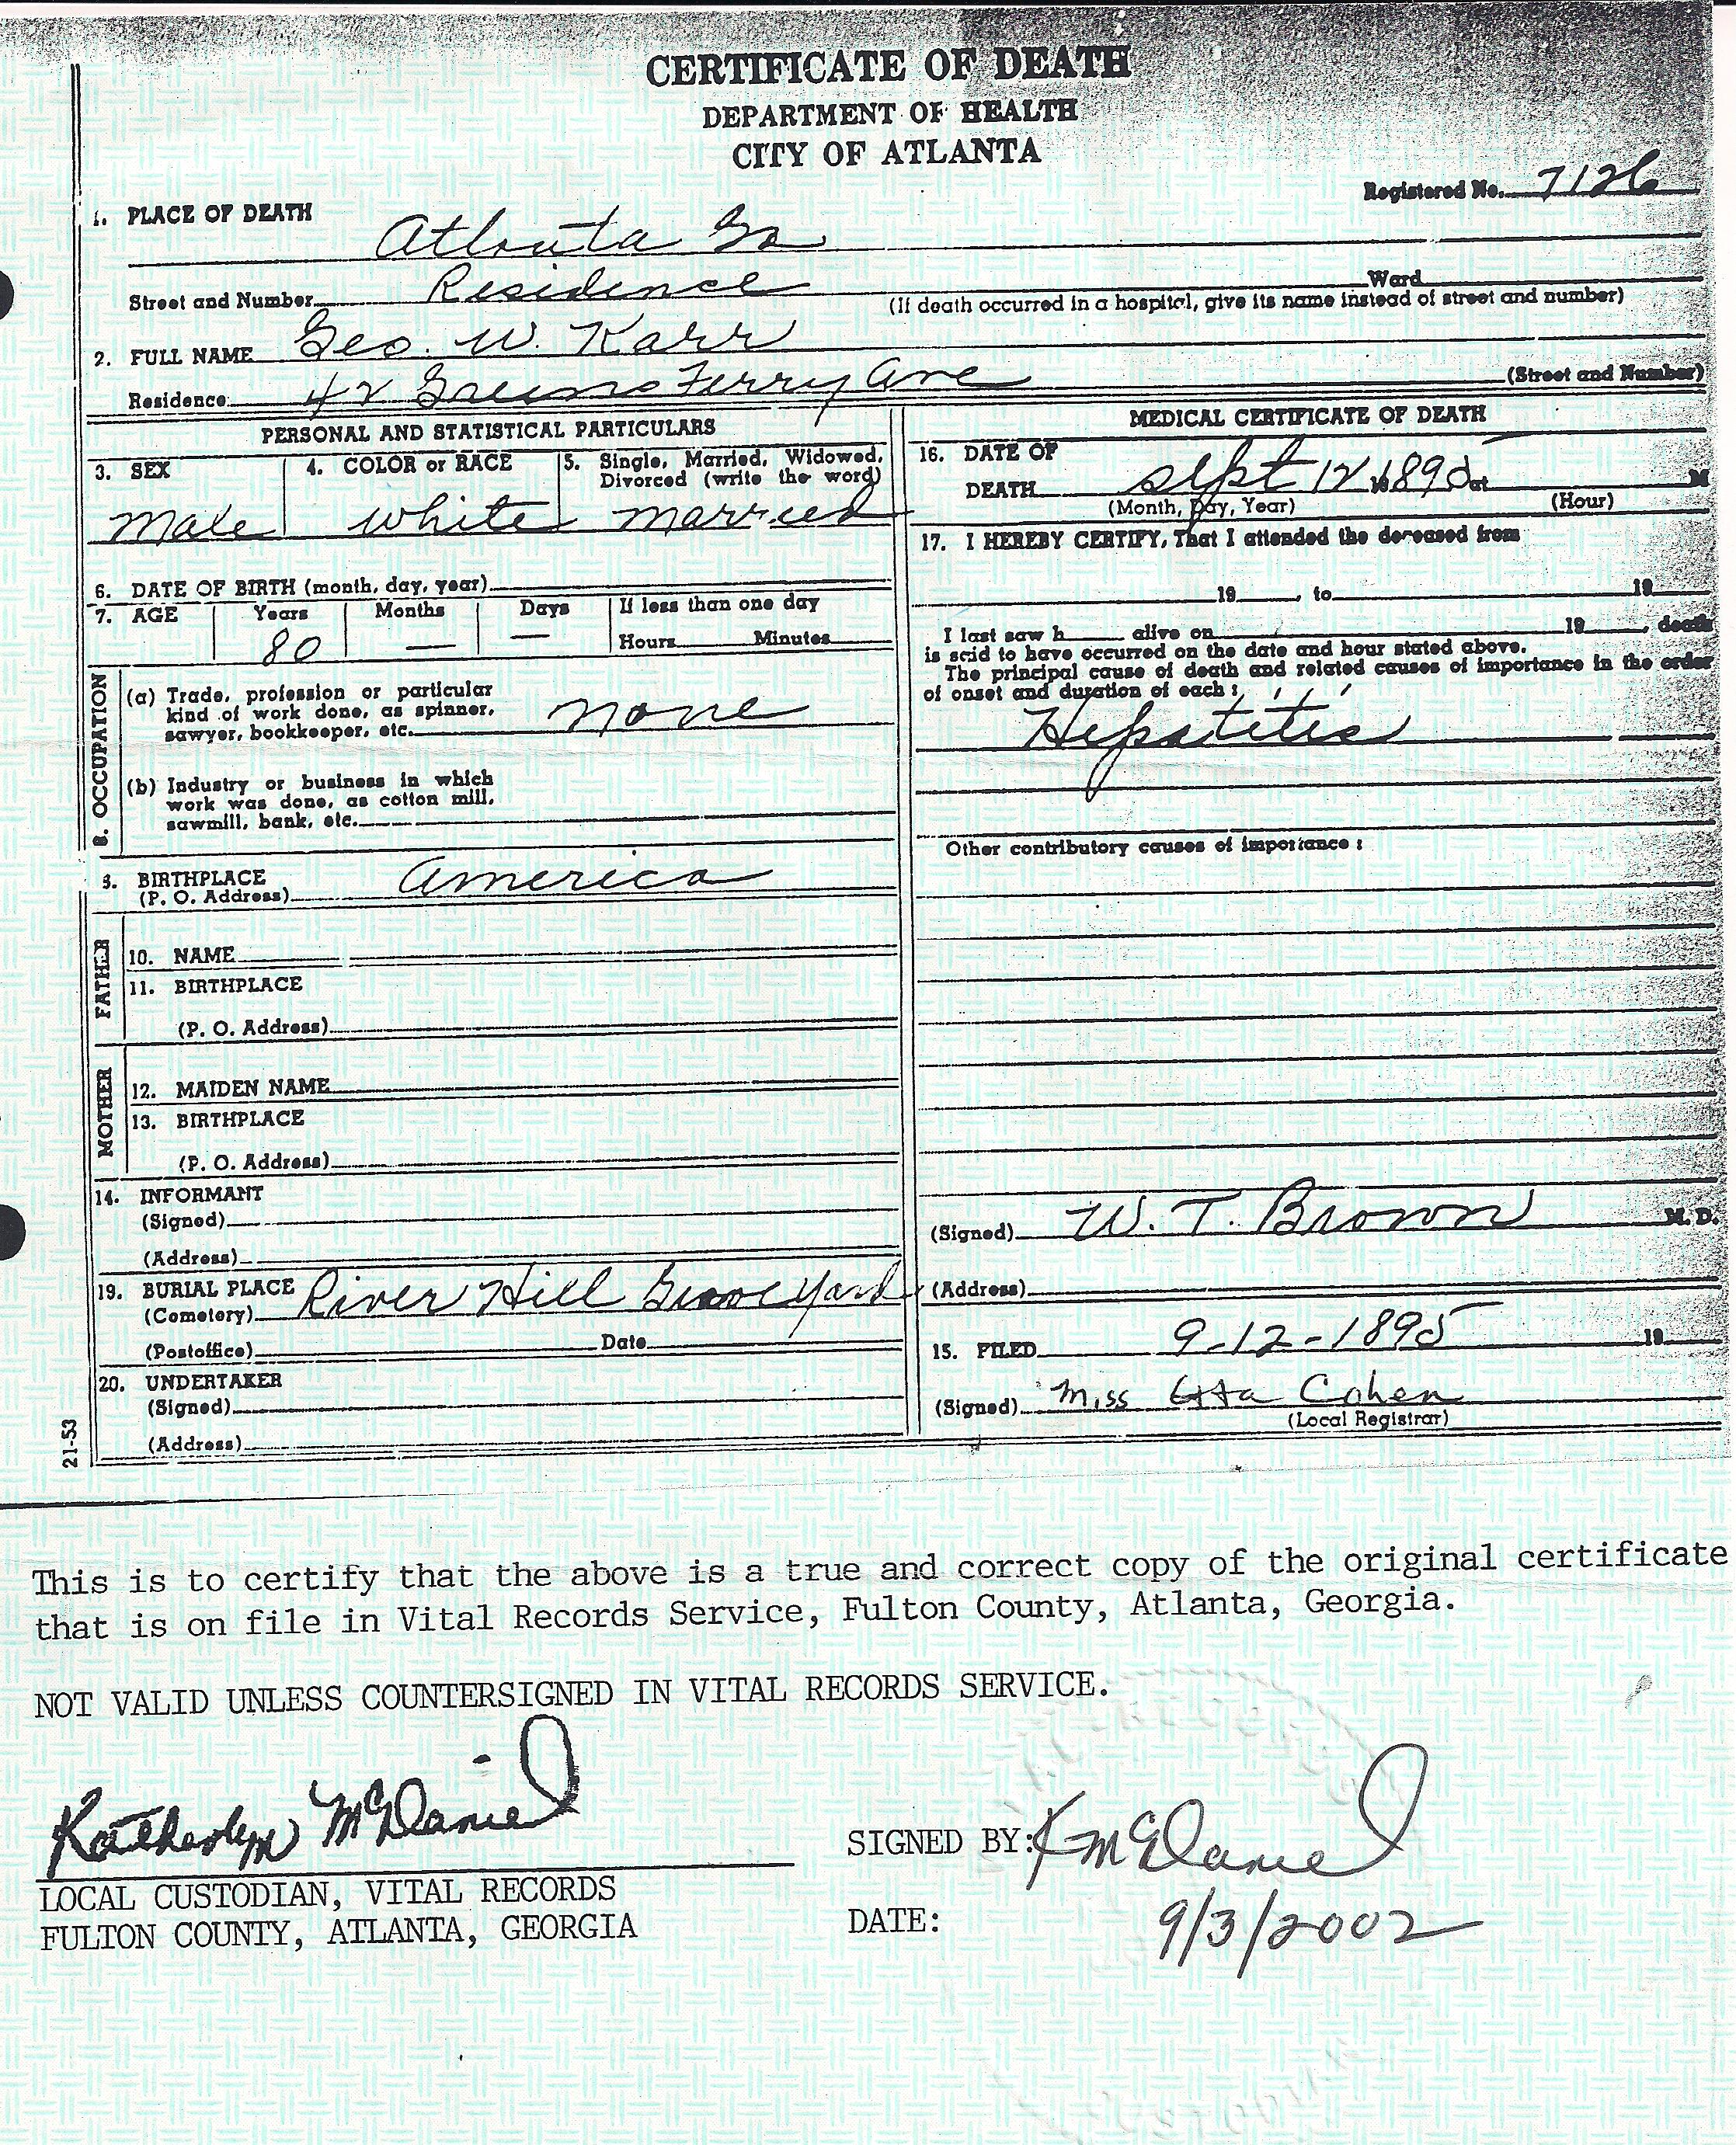 CERTIFICATE OF DEATH
DEPARTMENT OF HEALTH
CITY OF ATLANTA
Registered No. 7126
1. PLACE OF DEATH
Atlanta Ga
Street and Number Residence Ward
(If death occurred in a hospital, give its name instead of street and number)
2. FULL NAME Geo. W. Karr
Residence 42 Greens Ferry Ave (Street and Number)
PERSONAL AND STATISTICAL PARTICULARS
3. SEX 4. COLOR or RACE 5. Single, Married, Widowed,
Divorced (write the word)
Male white married
6. DATE OF BIRTH (month, day, year)
7. AGE Years Months Days If less than one day
80 — — Hours Minutes
8. OCCUPATION
(a) Trade, profession or particular
kind of work done, as spinner,
sawyer, bookkeeper, etc. none
(b) Industry or business in which
work was done, as cotton mill,
sawmill, bank, etc.
9. BIRTHPLACE America
(P. O. Address)
FATHER
10. NAME
11. BIRTHPLACE
(P. O. Address)
MOTHER
12. MAIDEN NAME
13. BIRTHPLACE
(P. O. Address)
14. INFORMANT
(Signed)
(Address)
19. BURIAL PLACE River Hill Grave Yard
(Cemetery)
(Postoffice) Date
20. UNDERTAKER
(Signed)
(Address)
21-53
MEDICAL CERTIFICATE OF DEATH
16. DATE OF
DEATH Sept 12 1895 at M
(Month, Day, Year) (Hour)
17. I HEREBY CERTIFY, That I attended the deceased from
19 , to 19
I last saw h alive on 19 , death
is said to have occurred on the date and hour stated above.
The principal cause of death and related causes of importance in the order
of onset and duration of each:
Hepatitis
Other contributory causes of importance:
(Signed) W. T. Brown M. D.
(Address)
15. FILED 9-12-1895 19
(Signed) Miss Etta Cohen
(Local Registrar)
This is to certify that the above is a true and correct copy of the original certificate
that is on file in Vital Records Service, Fulton County, Atlanta, Georgia.
NOT VALID UNLESS COUNTERSIGNED IN VITAL RECORDS SERVICE.
Katherlyn McDaniel
LOCAL CUSTODIAN, VITAL RECORDS
FULTON COUNTY, ATLANTA, GEORGIA
SIGNED BY: K McDaniel
DATE: 9/3/2002